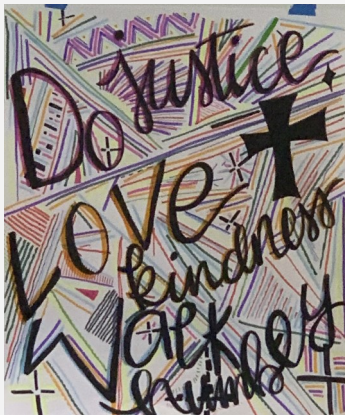 Do justice
Love
kindness
Walk
humbley